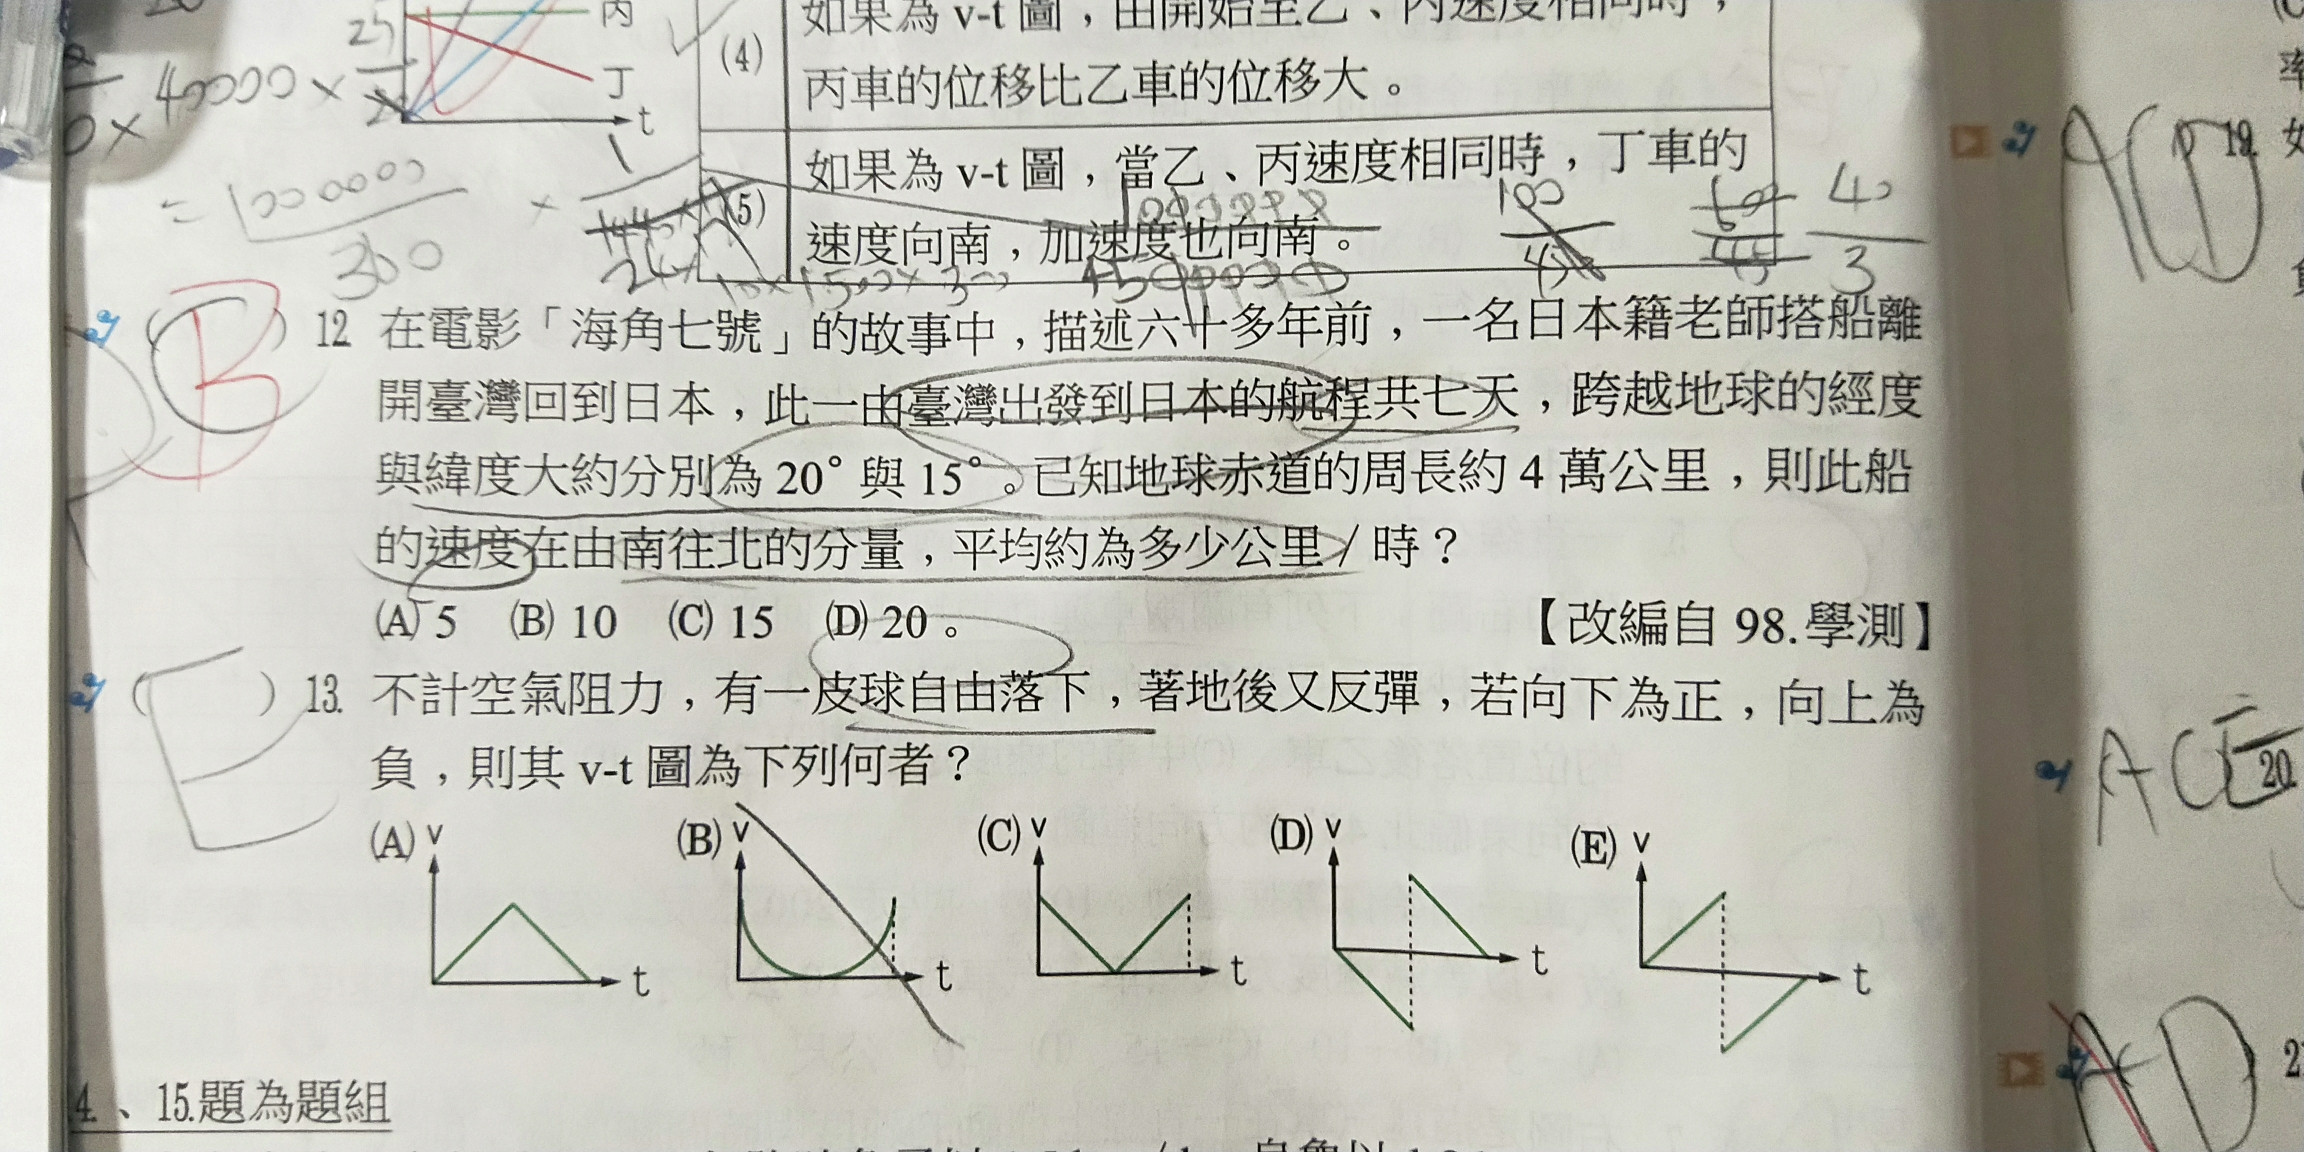 丙
丁
t
(4)
如果為 v-t 圖，由開始至乙、丙速度相同時，
丙車的位移比乙車的位移大。
(5)
如果為 v-t 圖，當乙、丙速度相同時，丁車的
速度向南，加速度也向南。
25
40000 ×
= 1000000
360
100
40
3
B
12 在電影「海角七號」的故事中，描述六十多年前，一名日本籍老師搭船離
開臺灣回到日本，此一由臺灣出發到日本的航程共七天，跨越地球的經度
與緯度大約分別為 20° 與 15°。已知地球赤道的周長約 4 萬公里，則此船
的速度在由南往北的分量，平均約為多少公里／時？
(A) 5 (B) 10 (C) 15 (D) 20。 【改編自 98.學測】
E
( ) 13. 不計空氣阻力，有一皮球自由落下，著地後又反彈，若向下為正，向上為
負，則其 v-t 圖為下列何者？
(A) v t (B) v t (C) v t (D) v t (E) v t
4、15.題為題組
率
ACD
19. 如
AC
20.
AD